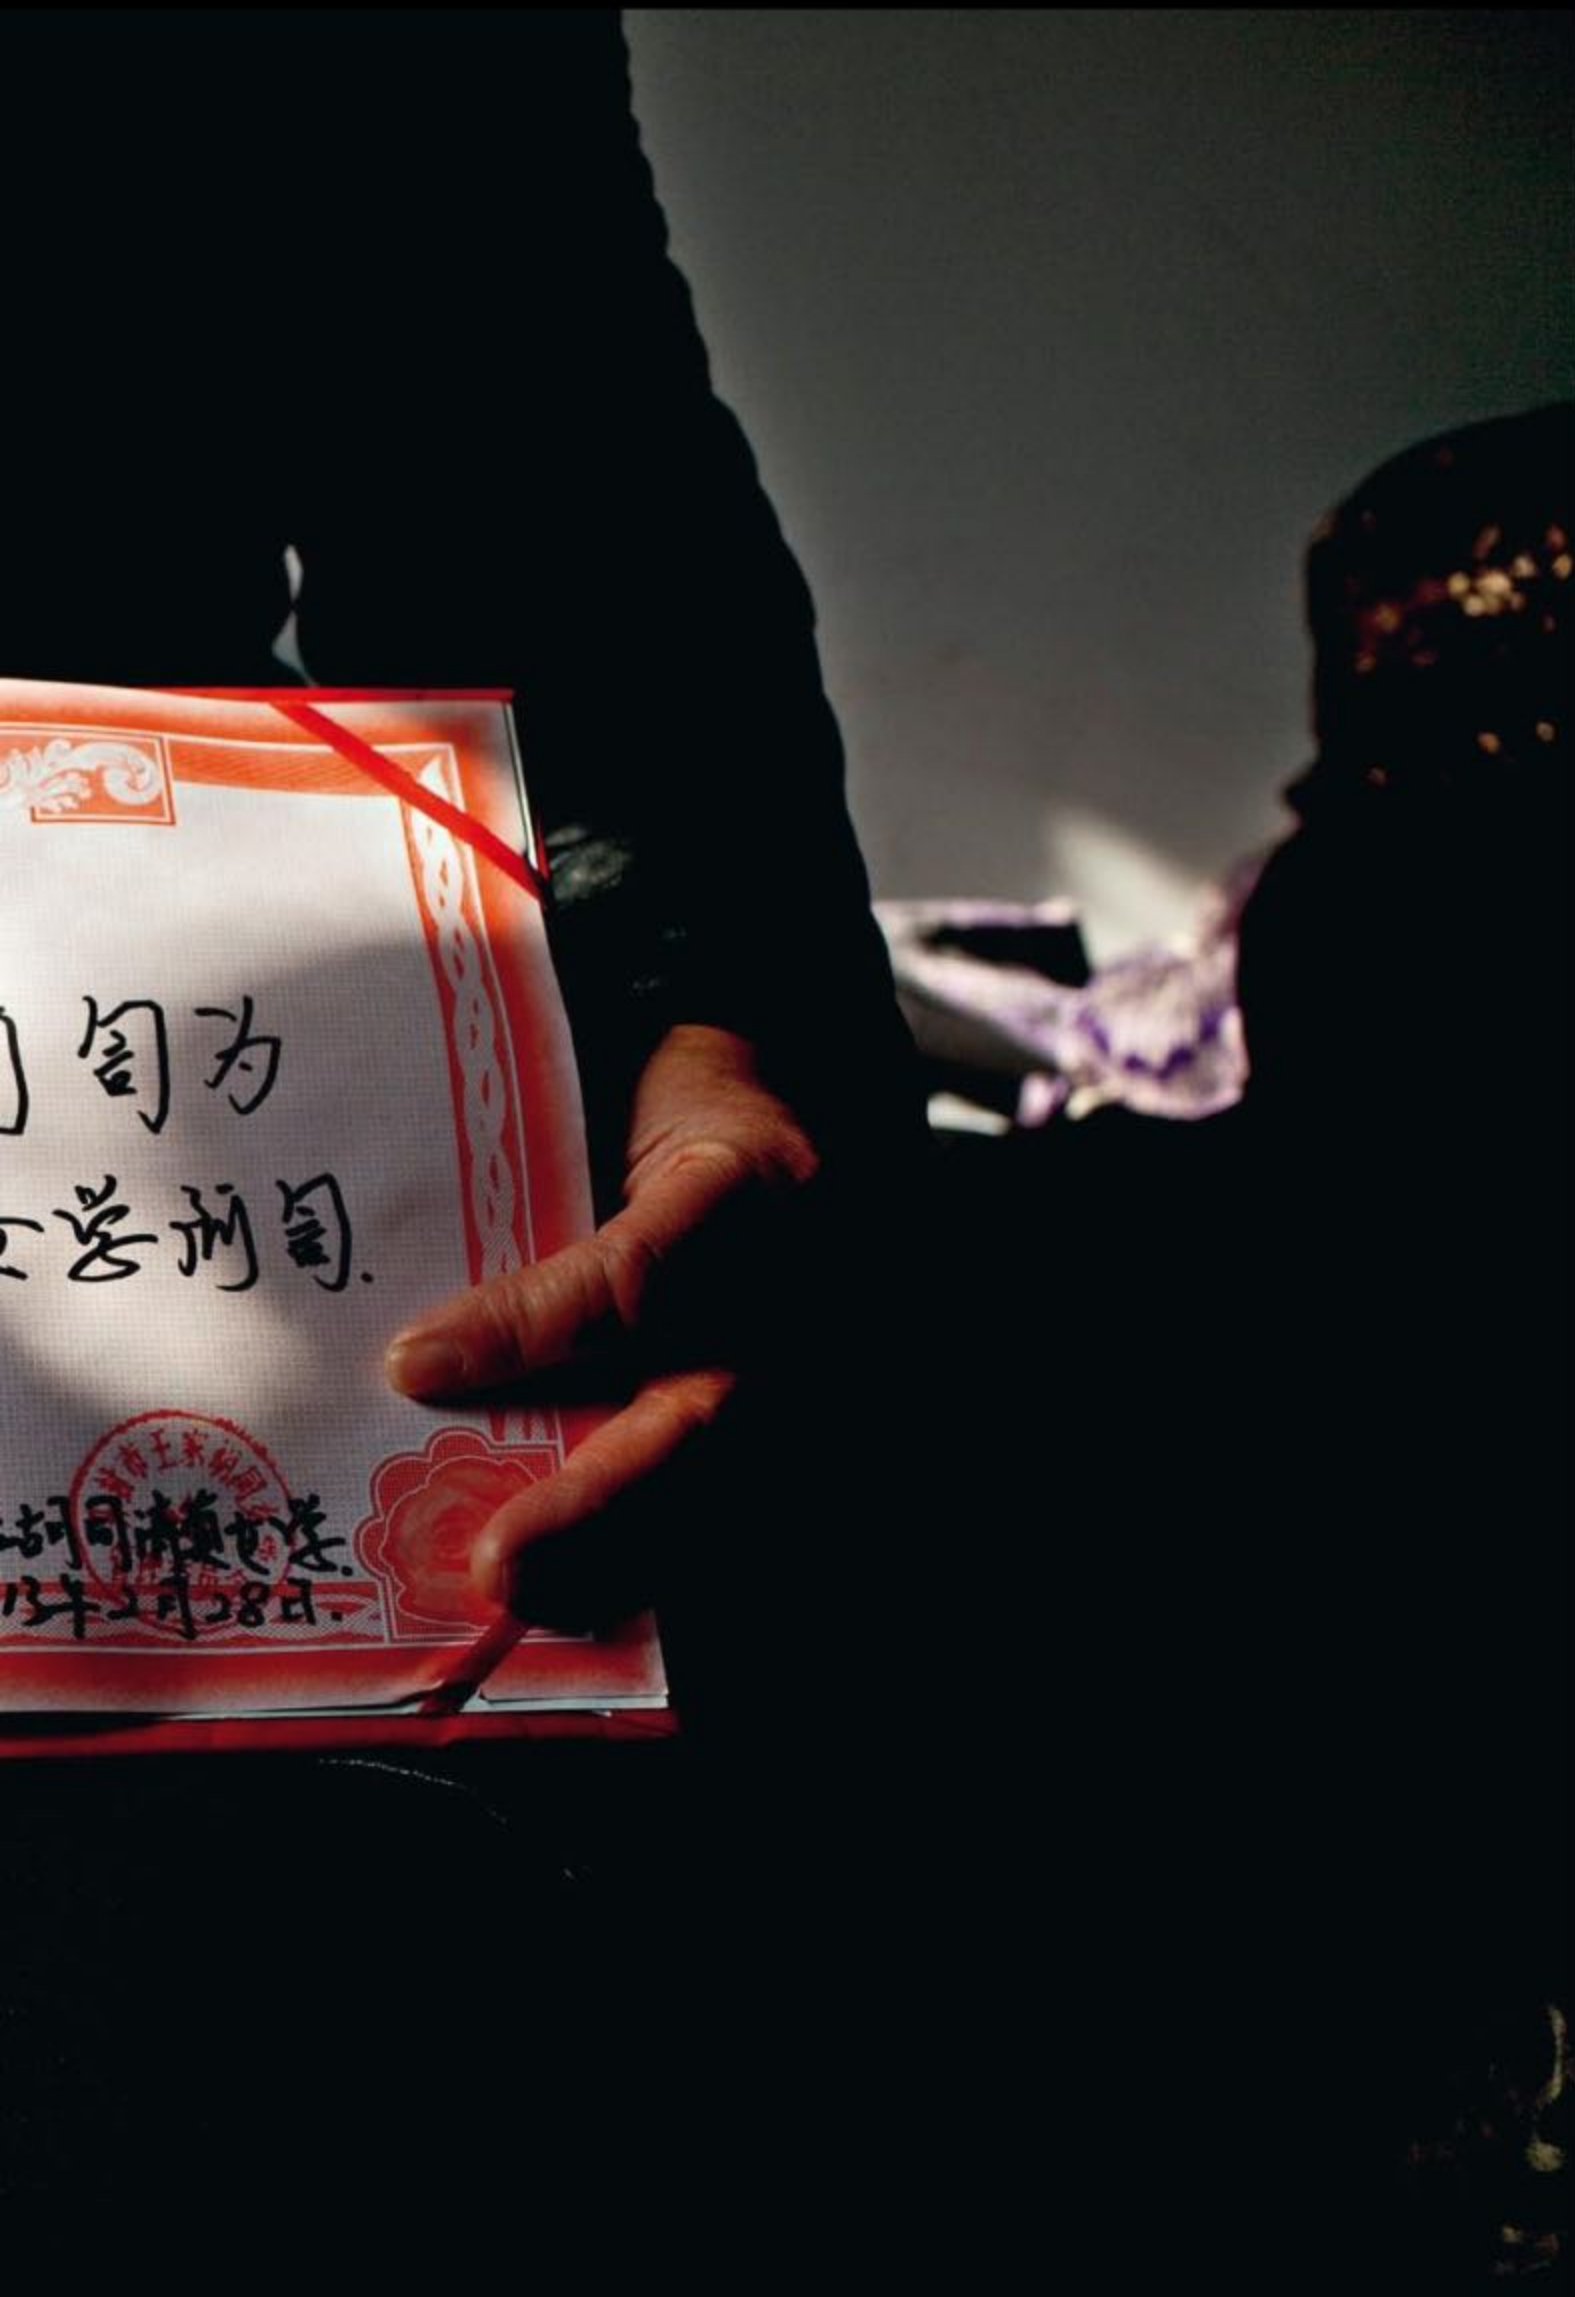 訇为
学阿訇.
市王家胡同
胡同清真女学.
13年2月28日.